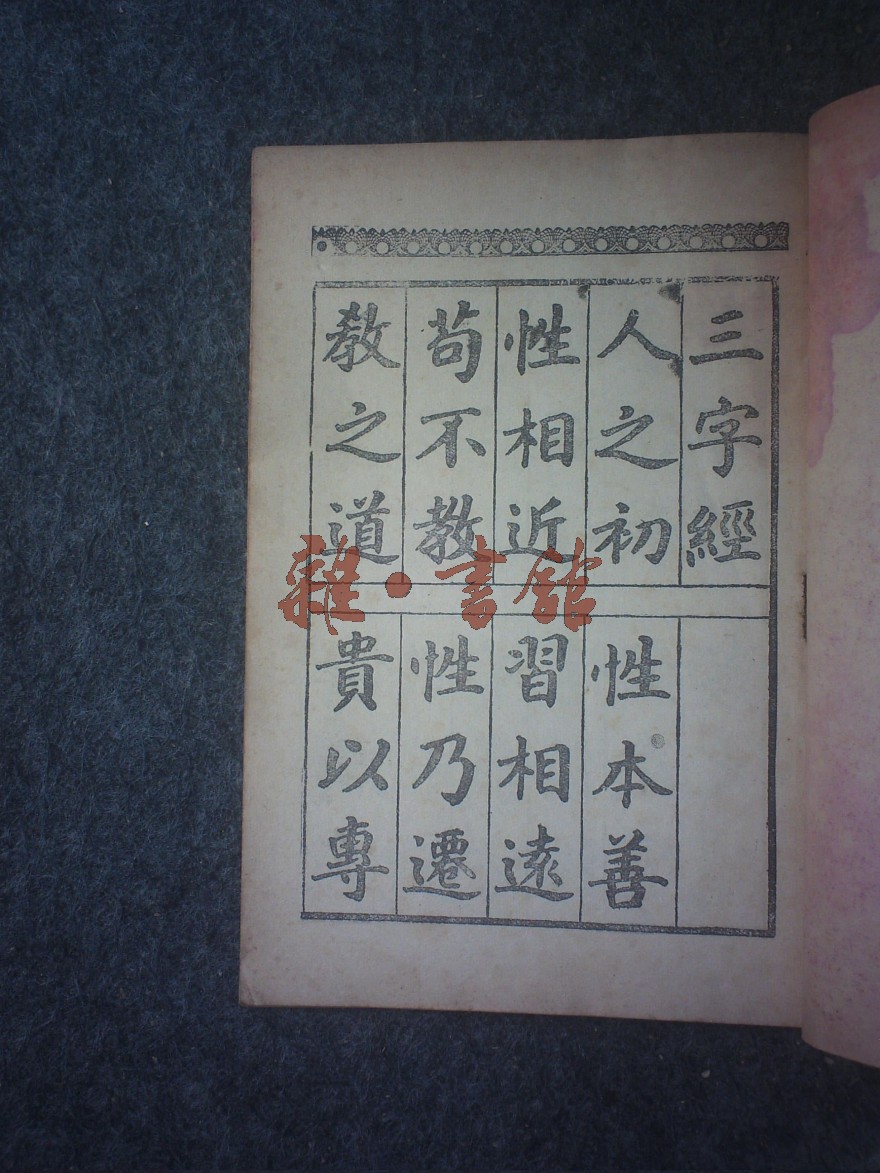 三字經
人之初
性本善
性相近
習相遠
苟不教
性乃遷
教之道
貴以專
雜·書館